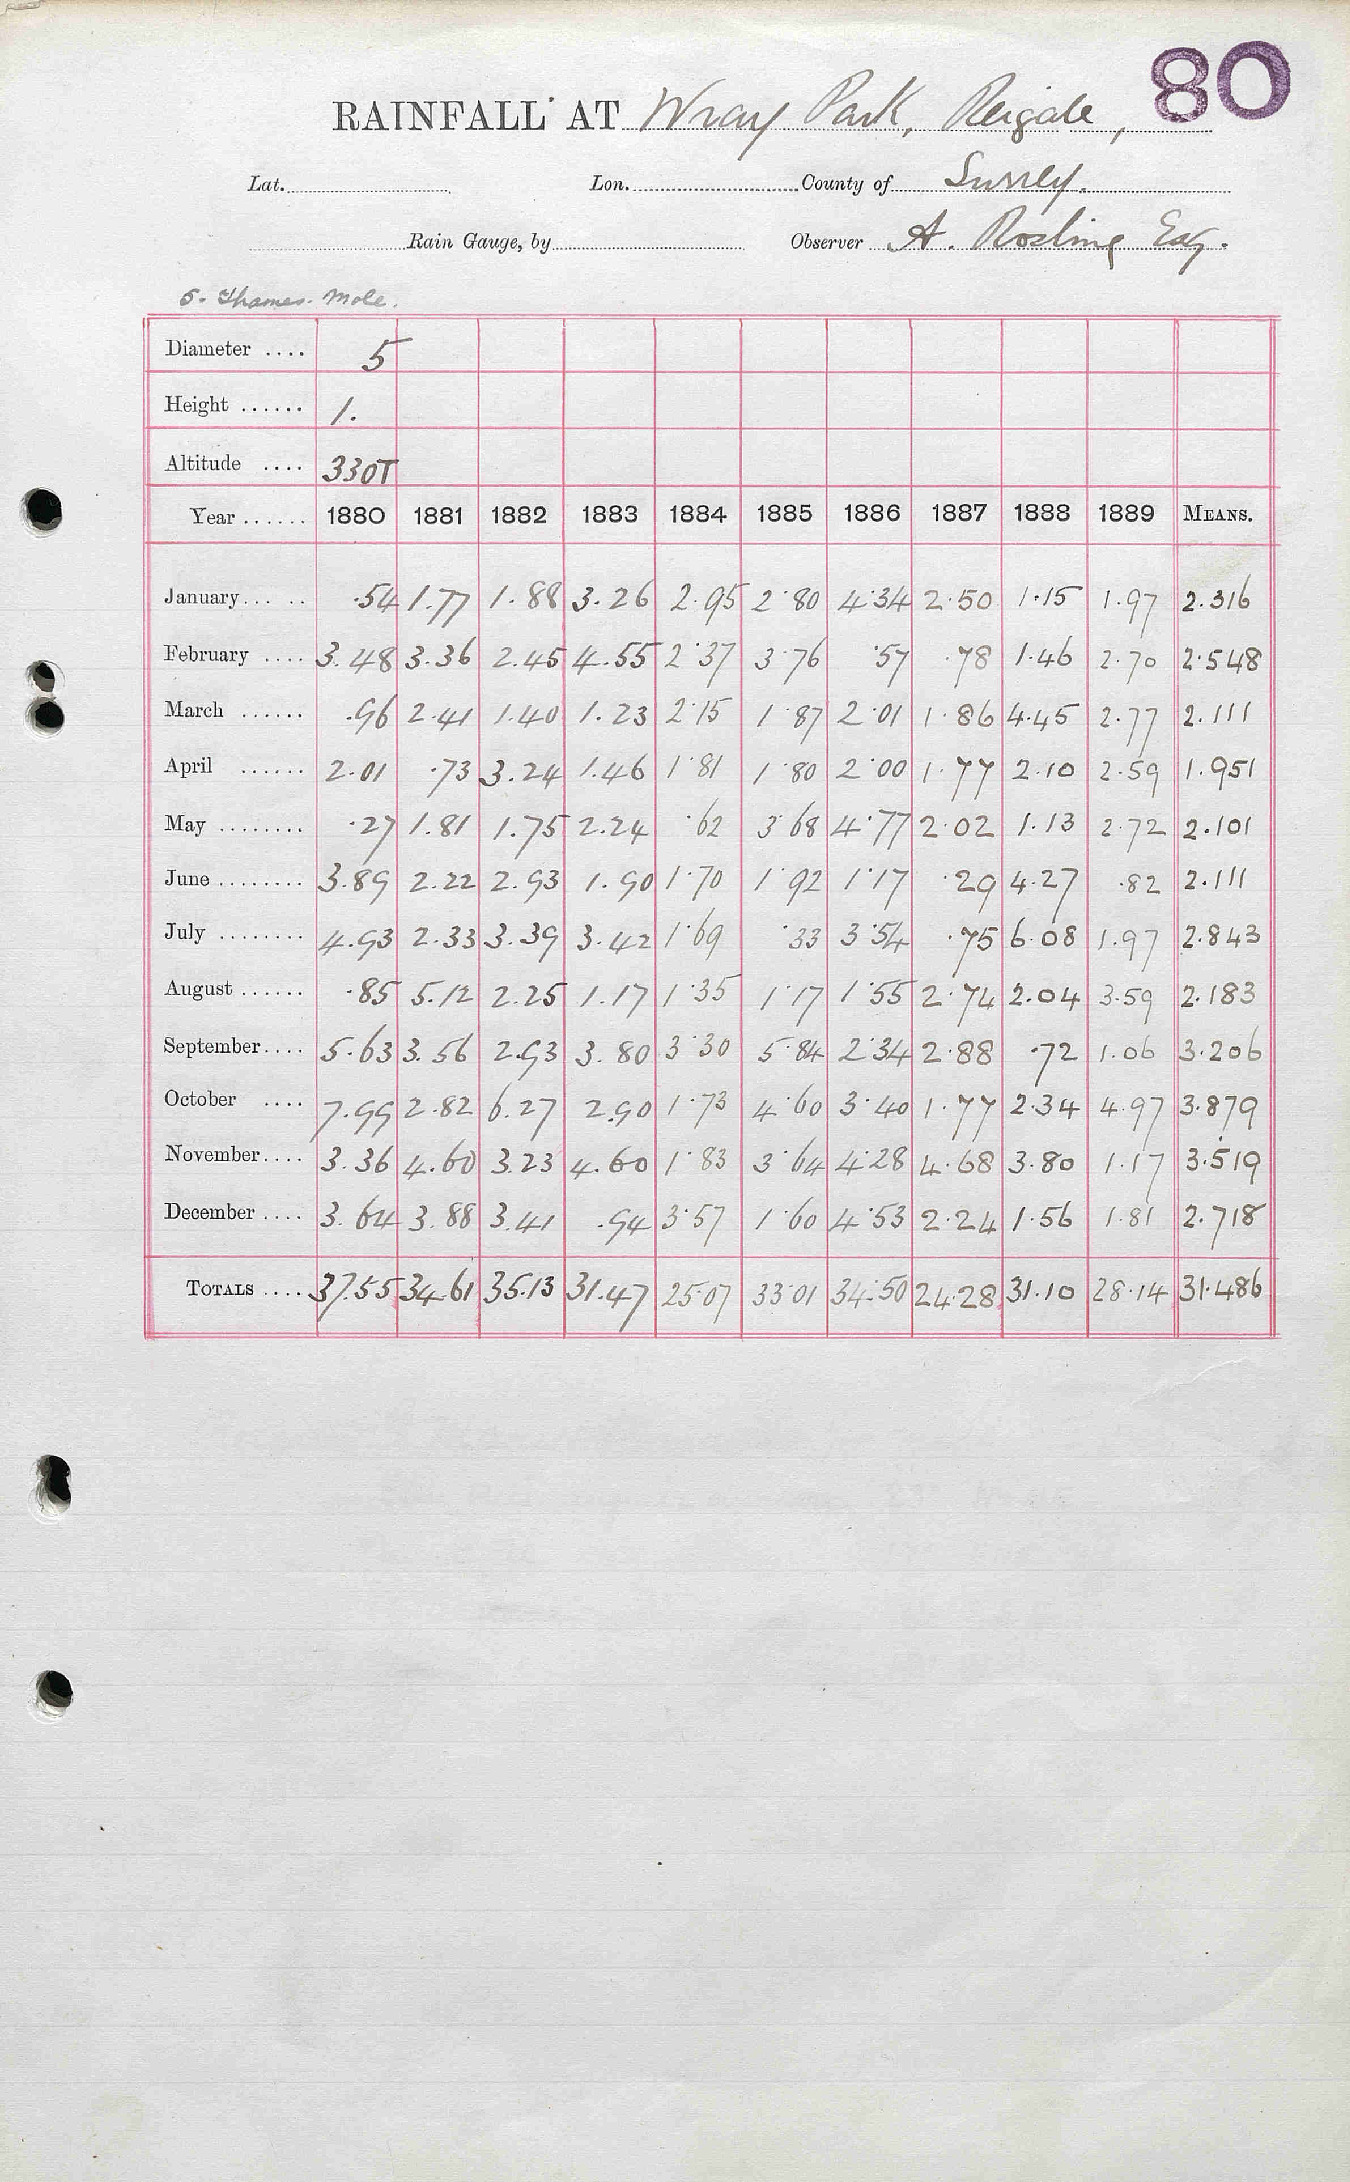 80
RAINFALL AT Wray Park, Reigate,
Lat. Lon. County of Surrey.
Rain Gauge, by Observer A. Rosling Esq.
5. Thames. Mole.
Diameter .... 5
Height ...... 1.
Altitude .... 330T
Year ...... 1880 1881 1882 1883 1884 1885 1886 1887 1888 1889 MEANS.
January... .. .54 1.77 1.88 3.26 2.95 2.80 4.34 2.50 1.15 1.97 2.316
February .... 3.48 3.36 2.45 4.55 2.37 3.76 .57 .78 1.46 2.70 2.548
March ...... .96 2.41 1.40 1.23 2.15 1.87 2.01 1.86 4.45 2.77 2.111
April ...... 2.01 .73 3.24 1.46 1.81 1.80 2.00 1.77 2.10 2.59 1.951
May ........ .27 1.81 1.75 2.24 .62 3.68 4.77 2.02 1.13 2.72 2.101
June ........ 3.89 2.22 2.93 1.90 1.70 1.92 1.17 .29 4.27 .82 2.111
July ........ 4.93 2.33 3.39 3.42 1.69 .33 3.54 .75 6.08 1.97 2.843
August ...... .85 5.12 2.25 1.17 1.35 1.17 1.55 2.74 2.04 3.59 2.183
September.... 5.63 3.56 2.93 3.80 3.30 5.84 2.34 2.88 .72 1.06 3.206
October .... 7.99 2.82 6.27 2.90 1.73 4.60 3.40 1.77 2.34 4.97 3.879
November.... 3.36 4.60 3.23 4.60 1.83 3.64 4.28 4.68 3.80 1.17 3.519
December .... 3.64 3.88 3.41 .94 3.57 1.60 4.53 2.24 1.56 1.81 2.718
TOTALS .... 37.55 34.61 35.13 31.47 25.07 33.01 34.50 24.28 31.10 28.14 31.486